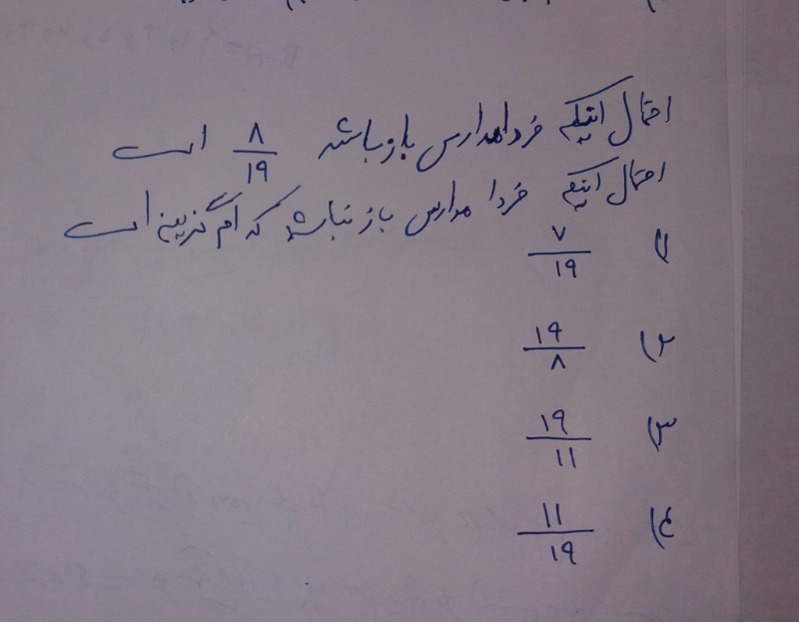 احتمال اینکه فردا مدارس باز باشد ۸/۱۹ است
احتمال اینکه فردا مدارس باز نباشد کدام گزینه است
۱) ۷/۱۹
۲) ۱۹/۸
۳) ۱۹/۱۱
۴) ۱۱/۱۹